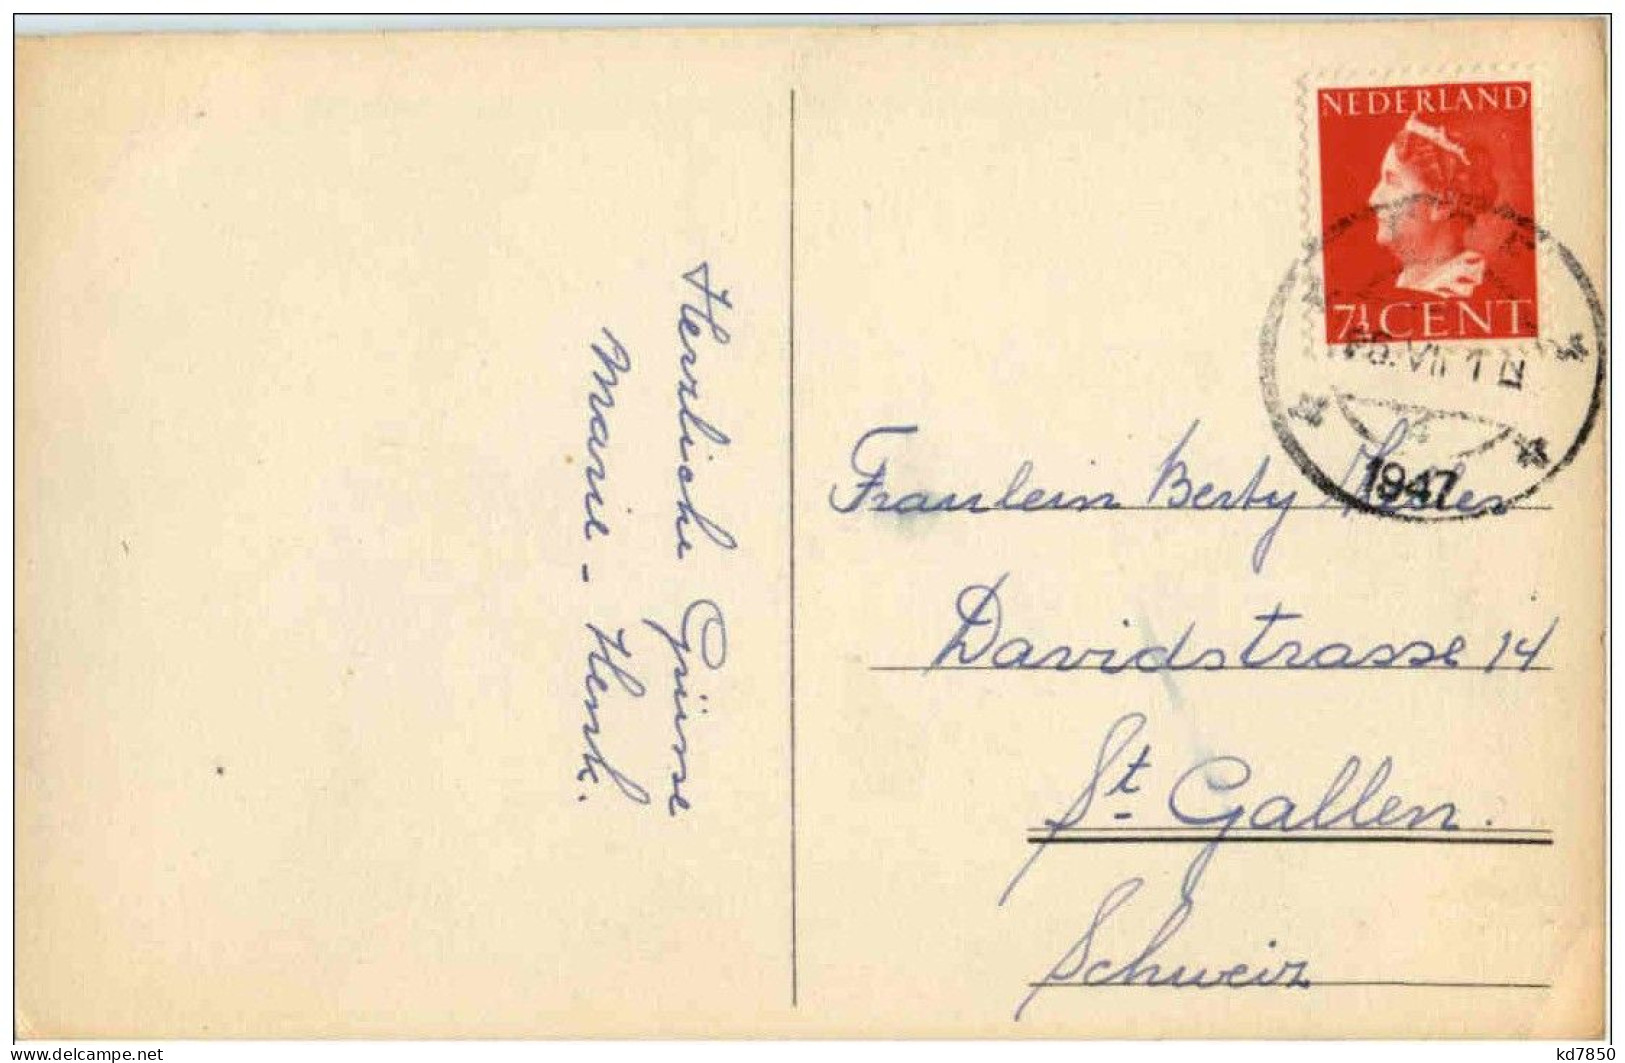 Herzliche Grüsse
Marie - Henk.
NEDERLAND
7½ CENT
VII 1
1947
Fraulein Berty
Davidstrasse 14
St. Gallen.
Schweiz
www.delcampe.net
kd7850